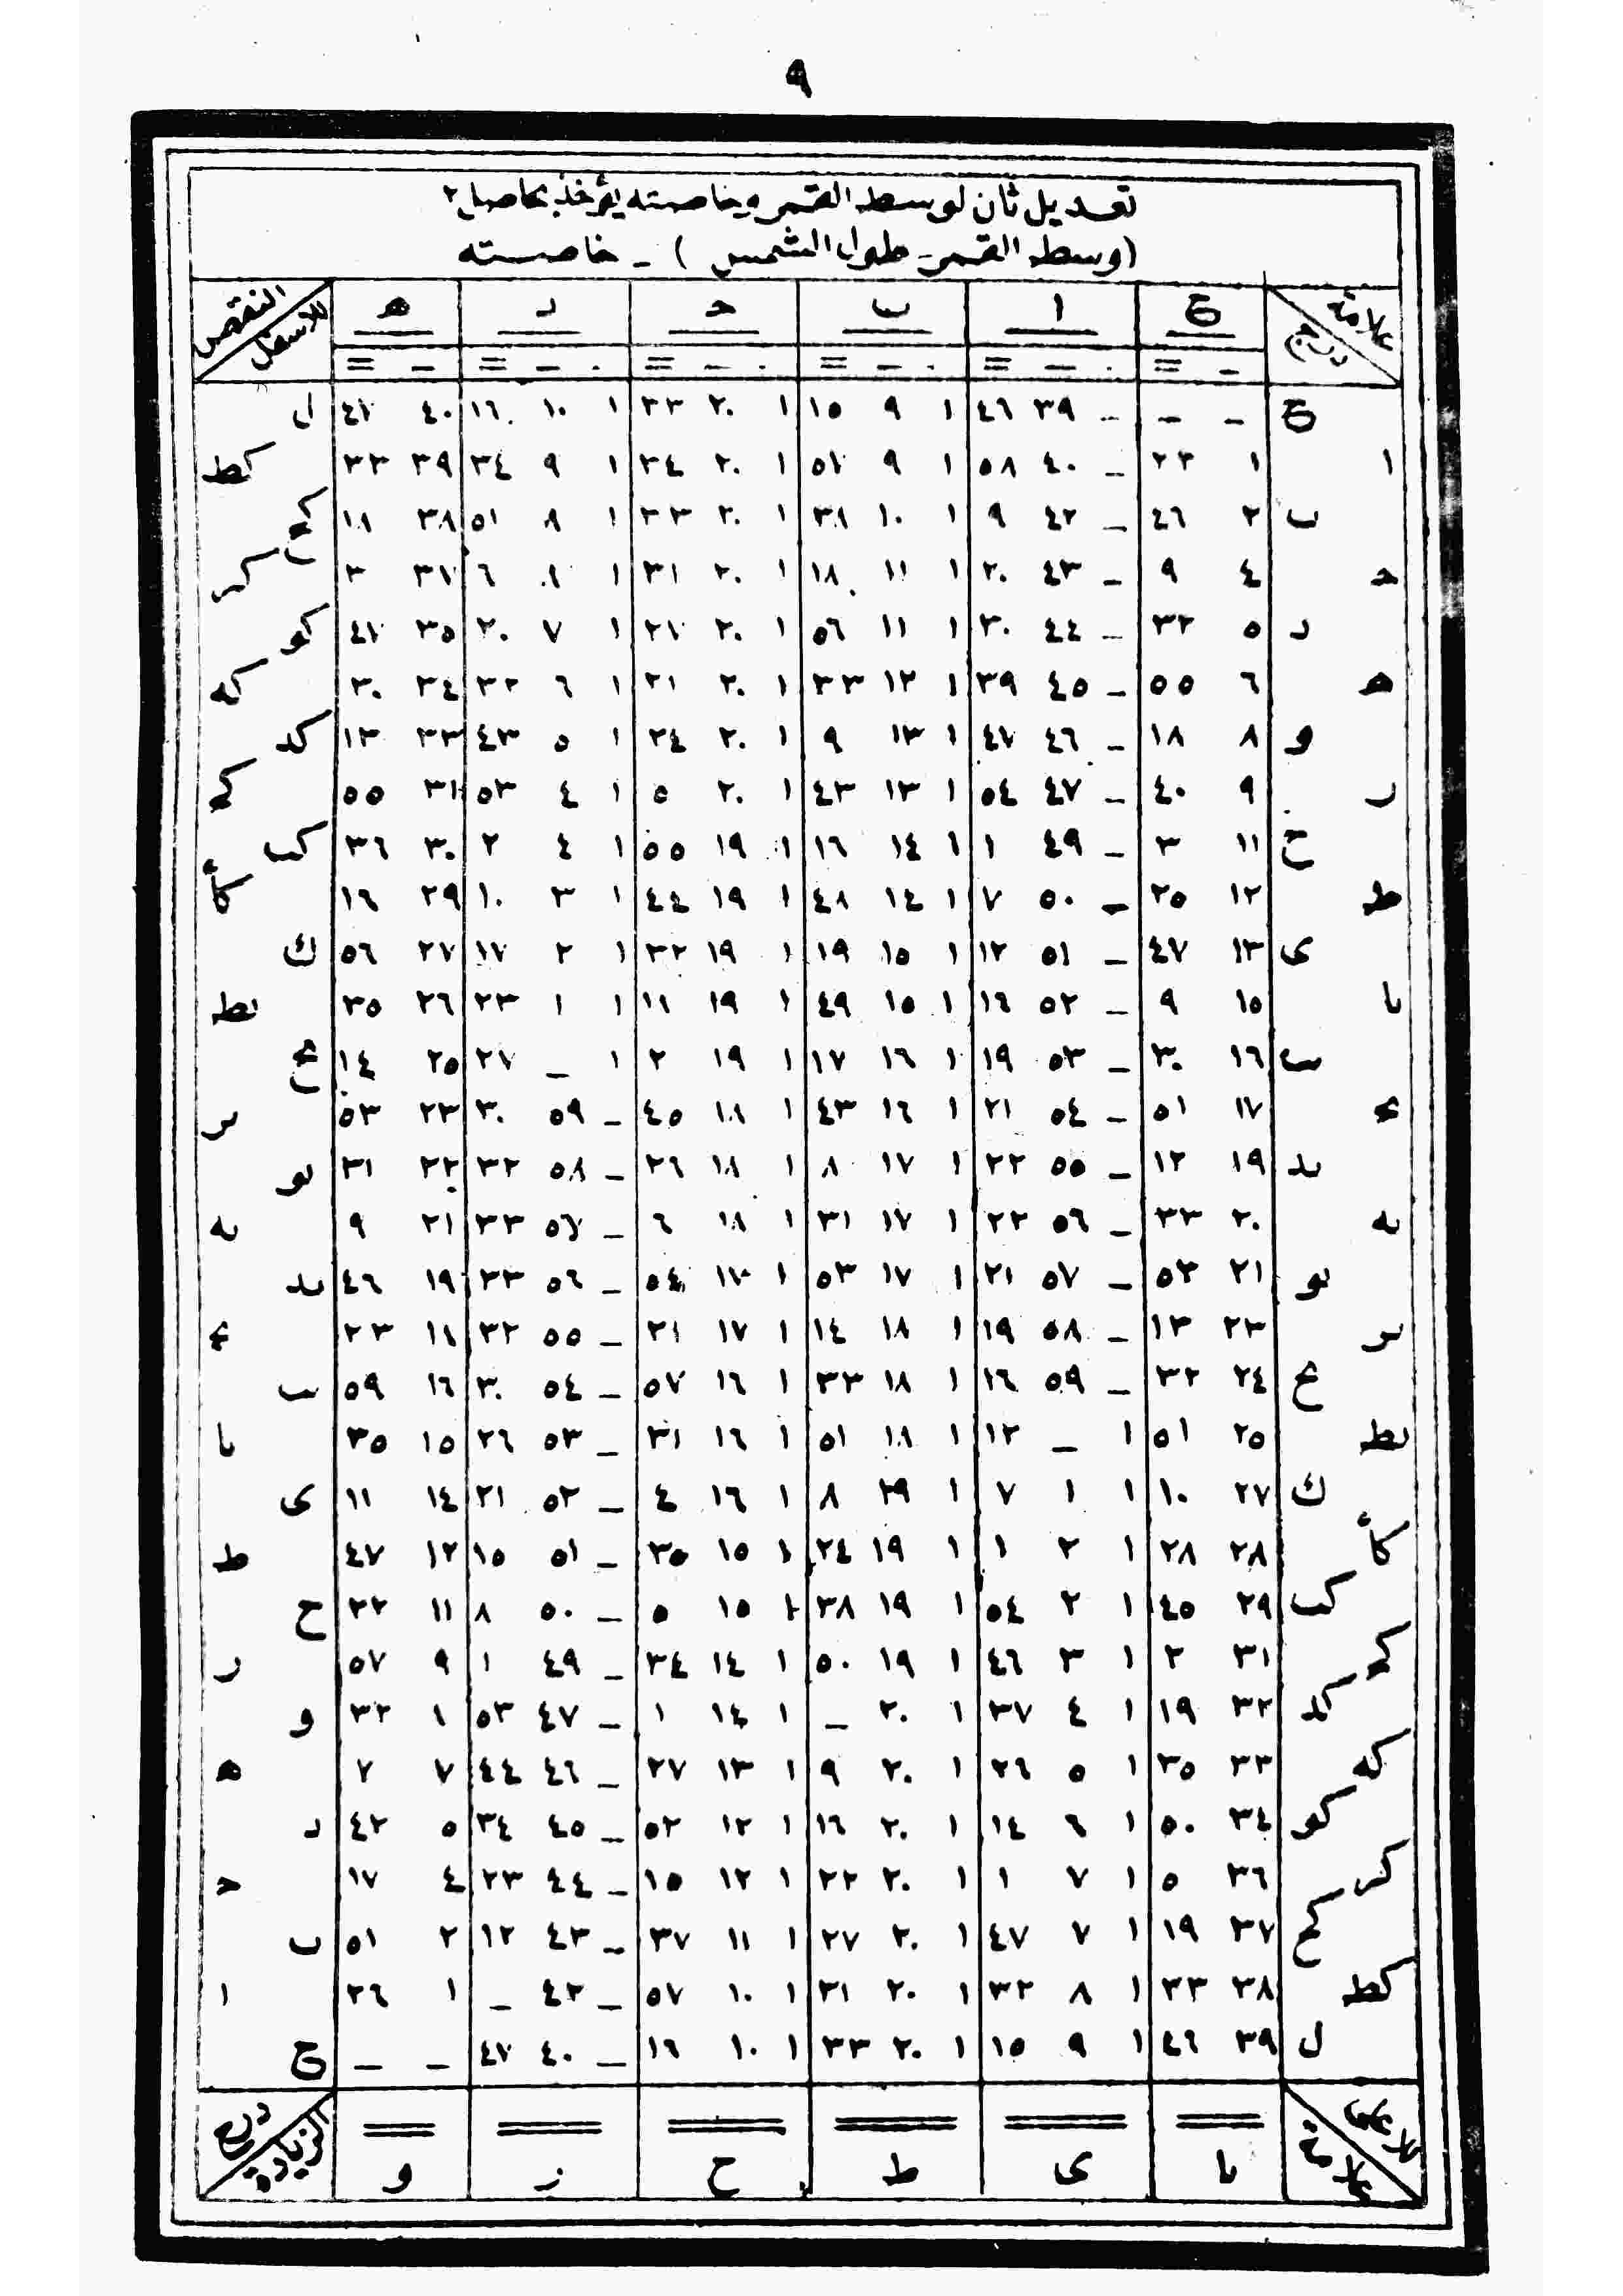 ٩
تعديل ثان لوسط القمر وخاصته يؤخذ بحاصل ٢
(وسط القمر - طول الشمس) - خاصته
علامة درج ع ا ب ح د ه النقص للاسفل
ع - - - ٣٩ ٤٦ ١ ٩ ١٥ ١ ٢٠ ٣٣ ١ ١٠ ١٦ ٤٠ ٤٧ ل
ا ١ ٢٣ - ٤٠ ٥٨ ١ ٩ ٥٧ ١ ٢٠ ٣٤ ١ ٩ ٣٤ ٣٩ ٣٣ كط
ب ٢ ٤٦ - ٤٢ ٩ ١ ١٠ ٣٨ ١ ٢٠ ٣٣ ١ ٨ ٥١ ٣٨ ١٨ كح
ح ٤ ٩ - ٤٣ ٢٠ ١ ١١ ١٨ ١ ٢٠ ٣١ ١ ٨ ٦ ٣٧ ٣ كر
د ٥ ٣٢ - ٤٤ ٣٠ ١ ١١ ٥٦ ١ ٢٠ ٢٧ ١ ٧ ٢٠ ٣٥ ٤٧ كو
ه ٦ ٥٥ - ٤٥ ٣٩ ١ ١٢ ٣٣ ١ ٢٠ ٢١ ١ ٦ ٣٢ ٣٤ ٣٠ كه
و ٨ ١٨ - ٤٦ ٤٧ ١ ١٣ ٩ ١ ٢٠ ٢٤ ١ ٥ ٤٣ ٣٣ ١٣ كد
ر ٩ ٤٠ - ٤٧ ٥٤ ١ ١٣ ٤٣ ١ ٢٠ ٥ ١ ٤ ٥٣ ٣١ ٥٥ كح
ح ١١ ٣ - ٤٩ ١ ١ ١٤ ١٦ ١ ١٩ ٥٥ ١ ٤ ٢ ٣٠ ٣٦ كب
ط ١٢ ٢٥ - ٥٠ ٧ ١ ١٤ ٤٨ ١ ١٩ ٤٤ ١ ٣ ١٠ ٢٩ ١٦ كا
ى ١٣ ٤٧ - ٥١ ١٢ ١ ١٥ ١٩ ١ ١٩ ٣٢ ١ ٢ ١٧ ٢٧ ٥٦ ك
يا ١٥ ٩ - ٥٢ ١٦ ١ ١٥ ٤٩ ١ ١٩ ١١ ١ ١ ٢٣ ٢٦ ٣٥ يط
يب ١٦ ٣٠ - ٥٣ ١٩ ١ ١٦ ١٧ ١ ١٩ ٢ ١ - ٢٧ ٢٥ ١٤ يح
يح ١٧ ٥١ - ٥٤ ٢١ ١ ١٦ ٤٣ ١ ١٨ ٤٥ - ٥٩ ٣٠ ٢٣ ٥٣ ير
يد ١٩ ١٢ - ٥٥ ٢٢ ١ ١٧ ٨ ١ ١٨ ٢٦ - ٥٨ ٣٢ ٢٢ ٣١ يو
يه ٢٠ ٣٣ - ٥٦ ٢٢ ١ ١٧ ٣١ ١ ١٨ ٦ - ٥٧ ٣٣ ٢١ ٩ يه
يو ٢١ ٥٣ - ٥٧ ٢١ ١ ١٧ ٥٣ ١ ١٧ ٥٤ - ٥٦ ٣٣ ١٩ ٤٦ يد
ير ٢٣ ١٣ - ٥٨ ١٩ ١ ١٨ ١٤ ١ ١٧ ٢١ - ٥٥ ٣٢ ١٨ ٢٣ يح
يح ٢٤ ٣٢ - ٥٩ ١٦ ١ ١٨ ٣٣ ١ ١٦ ٥٧ - ٥٤ ٣٠ ١٦ ٥٩ يب
يط ٢٥ ٥١ ١ - ١٢ ١ ١٨ ٥١ ١ ١٦ ٣١ - ٥٣ ٢٦ ١٥ ٣٥ يا
ك ٢٧ ١٠ ١ ١ ٧ ١ ١٩ ٨ ١ ١٦ ٤ - ٥٢ ٢١ ١٤ ١١ ى
كا ٢٨ ٢٨ ١ ٢ ١ ١ ١٩ ٢٤ ١ ١٥ ٣٥ - ٥١ ١٥ ١٢ ٤٧ ط
كب ٢٩ ٤٥ ١ ٢ ٥٤ ١ ١٩ ٣٨ ١ ١٥ ٥ - ٥٠ ٨ ١١ ٢٢ ح
كح ٣١ ٢ ١ ٣ ٤٦ ١ ١٩ ٥٠ ١ ١٤ ٣٤ - ٤٩ ١ ٩ ٥٧ ر
كد ٣٢ ١٩ ١ ٤ ٣٧ ١ ٢٠ - ١ ١٤ ١ - ٤٧ ٥٣ ٨ ٣٢ و
كه ٣٣ ٣٥ ١ ٥ ٢٦ ١ ٢٠ ٩ ١ ١٣ ٢٧ - ٤٦ ٤٤ ٧ ٧ ه
كو ٣٤ ٥٠ ١ ٦ ١٤ ١ ٢٠ ١٦ ١ ١٢ ٥٢ - ٤٥ ٣٤ ٥ ٤٢ د
كر ٣٦ ٥ ١ ٧ ١ ١ ٢٠ ٢٢ ١ ١٢ ١٥ - ٤٤ ٢٣ ٤ ١٧ ح
كح ٣٧ ١٩ ١ ٧ ٤٧ ١ ٢٠ ٢٧ ١ ١١ ٣٧ - ٤٣ ١٢ ٢ ٥١ ب
كط ٣٨ ٣٣ ١ ٨ ٣٢ ١ ٢٠ ٣١ ١ ١٠ ٥٧ - ٤٢ - ١ ٢٦ ا
ل ٣٩ ٤٦ ١ ٩ ١٥ ١ ٢٠ ٣٣ ١ ١٠ ١٦ - ٤٠ ٤٧ - - ع
علامة يا ى ط ح ز و الزيادة درج